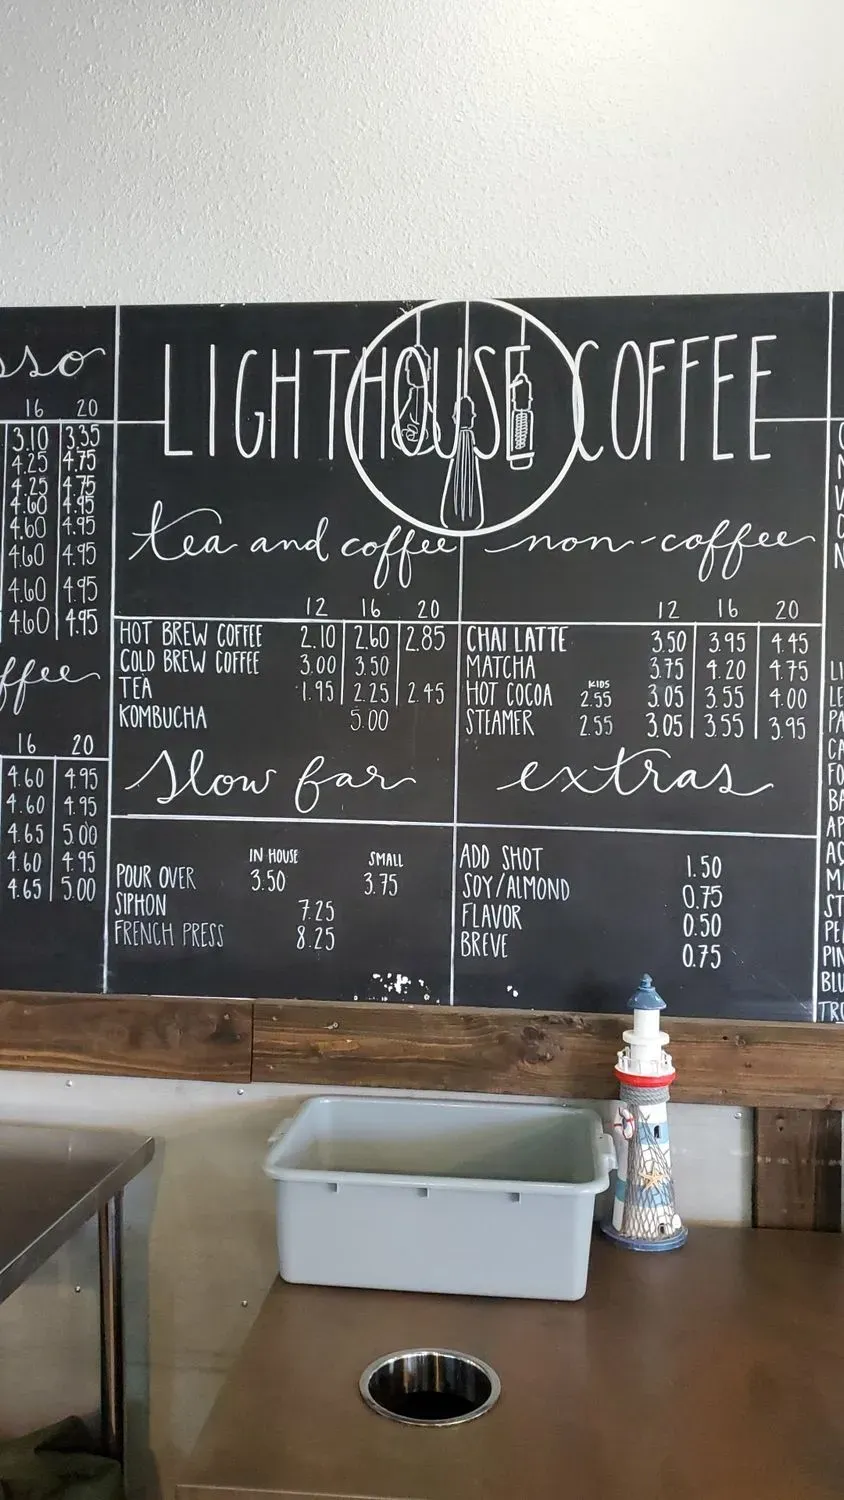 LIGHTHOUSE COFFEE
sso
16 20
3.10 3.35
4.25 4.75
4.25 4.75
4.60 4.95
4.60 4.95
4.60 4.95
4.60 4.95
4.60 4.95
ffee
16 20
4.60 4.95
4.60 4.95
4.65 5.00
4.60 4.95
4.65 5.00
tea and coffee
12 16 20
HOT BREW COFFEE 2.10 2.60 2.85
COLD BREW COFFEE 3.00 3.50
TEA 1.95 2.25 2.45
KOMBUCHA 5.00
non-coffee
12 16 20
CHAI LATTE 3.50 3.95 4.45
MATCHA 3.75 4.20 4.75
KIDS
HOT COCOA 2.55 3.05 3.55 4.00
STEAMER 2.55 3.05 3.55 3.95
slow bar
IN HOUSE SMALL
POUR OVER 3.50 3.75
SIPHON 7.25
FRENCH PRESS 8.25
extras
ADD SHOT 1.50
SOY/ALMOND 0.75
FLAVOR 0.50
BREVE 0.75
LI
LE
PA
CA
FO
BA
AP
AC
MA
ST
PE
PIN
BLU
TRO